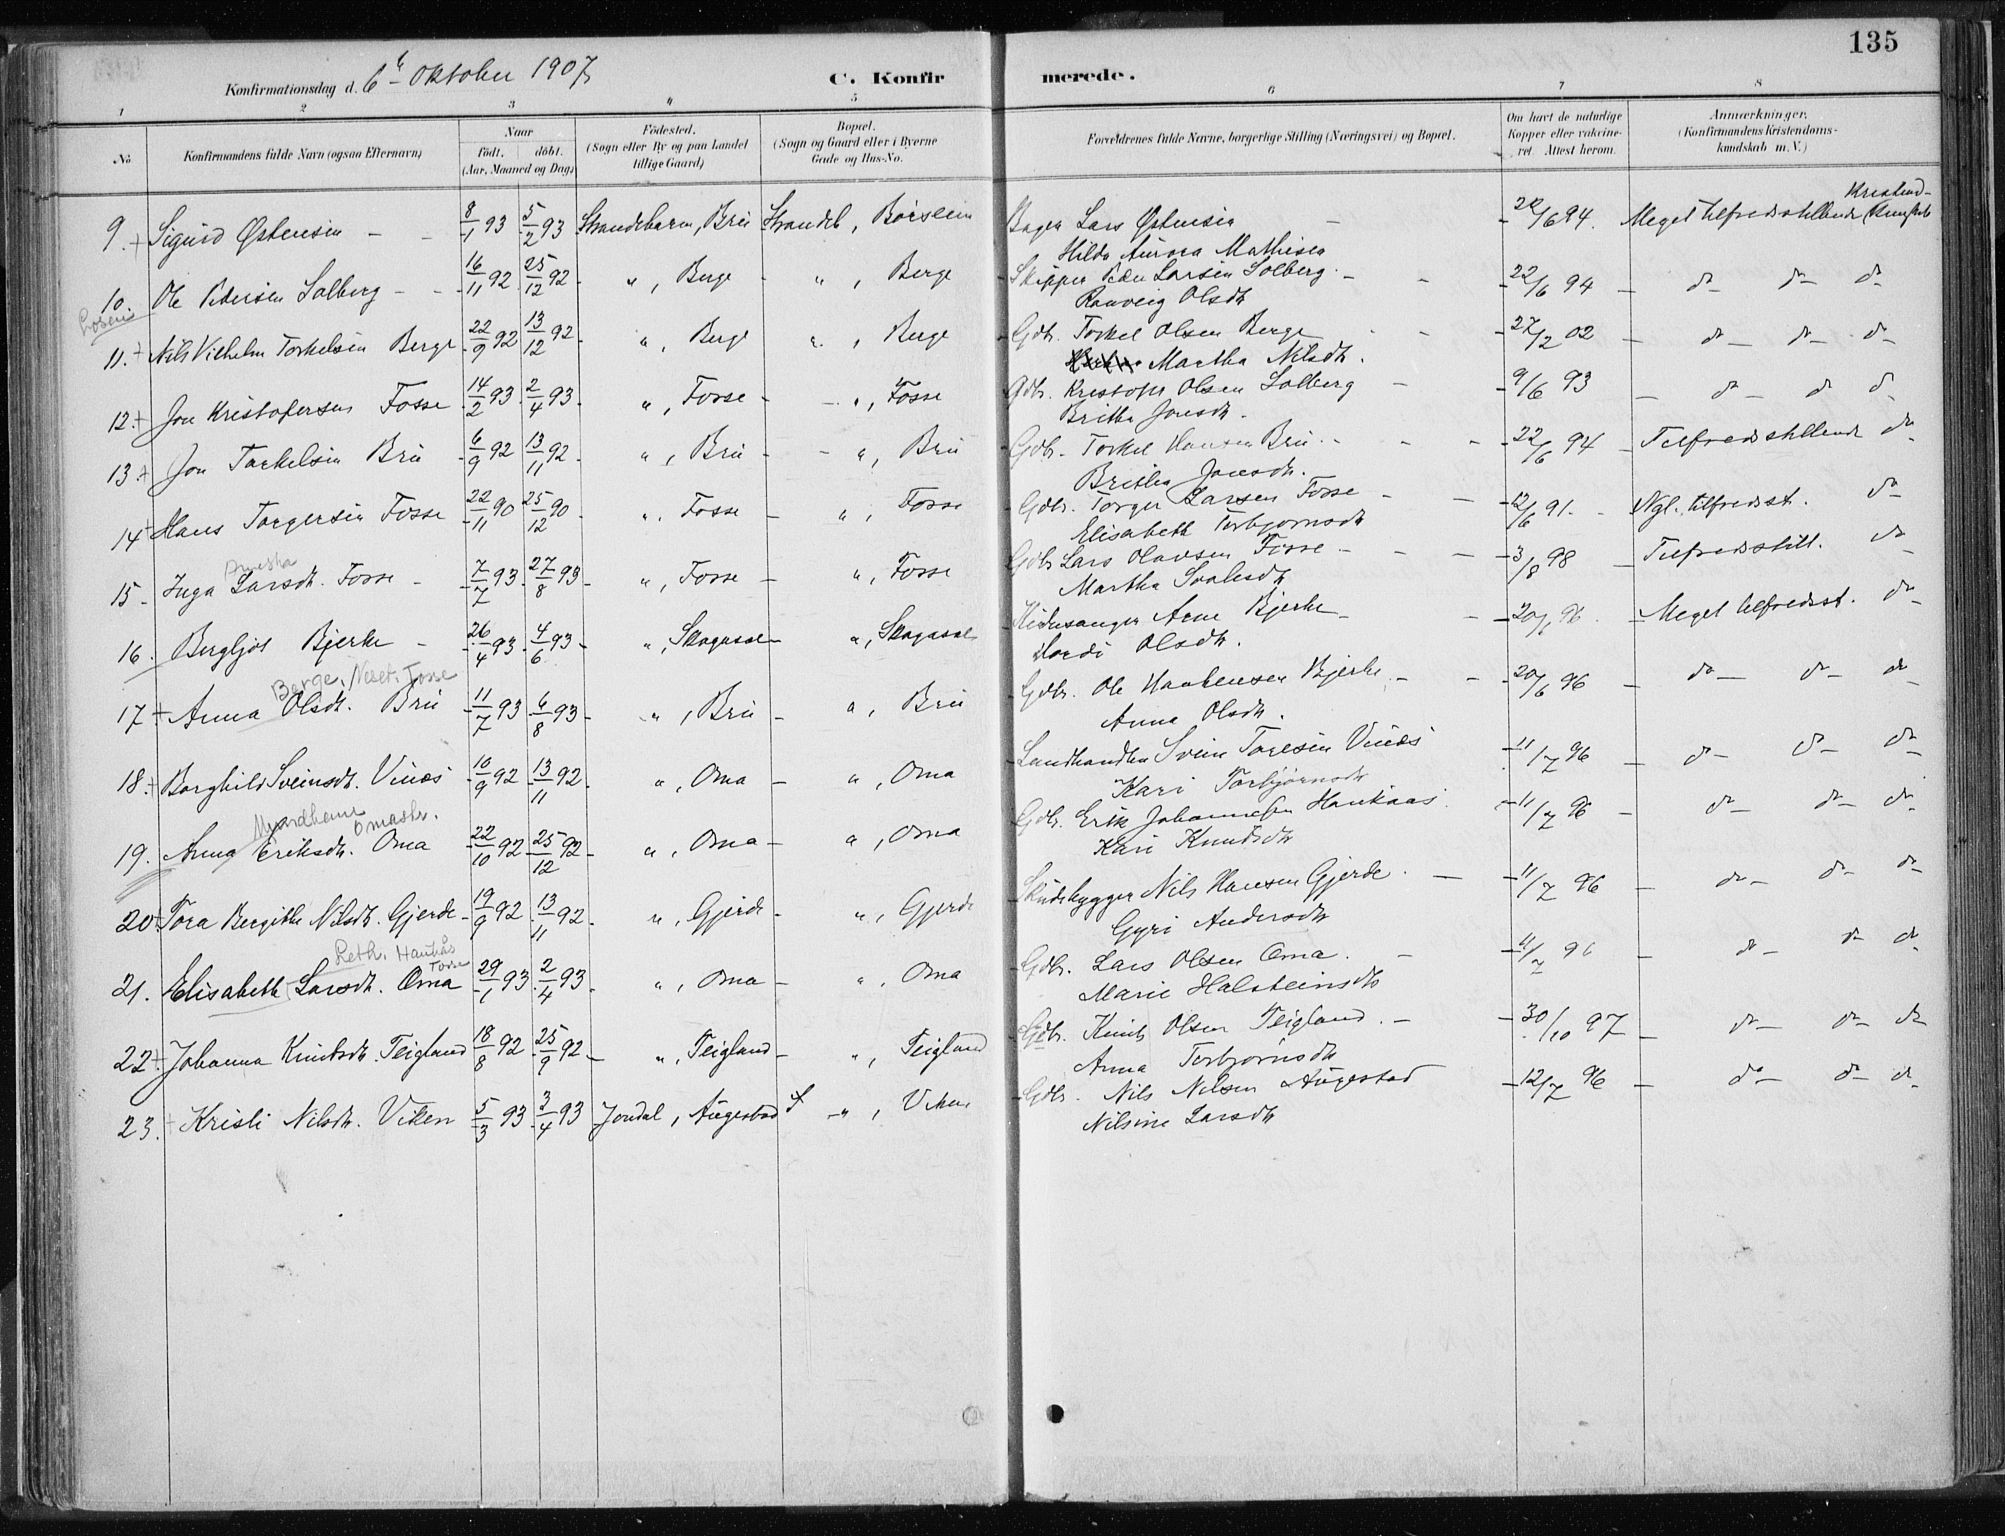 135
Konfirmationsdag d. 6te Oktober 1907
C. Konfirmerede.
1 2 3 4 5 6 7 8
No
Konfirmandens fulde Navn (ogsaa Efternavn)
Naar
født. døbt.
(Aar, Maaned og Dag)
Fødested.
(Sogn eller By og paa Landet
tillige Gaard)
Bopæl.
(Sogn og Gaard eller i Byerne
Gade og Hus-No.
Forældrenes fulde Navne, borgerlige Stilling (Næringsvei) og Bopæl.
Om havt de naturlige
Kopper eller vakcine-
ret. Attest herom.
Anmærkninger.
(Konfirmandens Kristendoms-
kundskab m. V.)
9. + Sigurd Østensen - - 8/1 93 5/2 93 Strandebarm, Bru Strandeb, Bager Lars Østensen - 20/6 94. Meget tilfredsstillende Kristend-
Hilda Aurora Mathisen
10. Ole Pedersen Solberg - - 16/11 92 25/12 92 - " , Berge - " , Berge Skipper Peder Larsen Solberg - - 22/6 94 - do - do - do
Ranveig Olsdtr
11. + Nils Vilhelm Torkelsen Berge 22/9 92 13/12 92 - " , Berge " , Berge Gdbr. Torkel Olsen Berge - - 27/2 02 - do - do - do -
Martha Nilsdtr.
12. + Jon Kristofersen Fosse 14/2 93 2/4 93 - " , Fosse - - " , Fosse Gdbr. Kristofer Olsen Solberg - 9/6 93 - do - do do
Britha Jonsdtr.
13. + Jon Torkelsen Bru 6/9 92 13/11 92 - " , Bru - - " , Bru Gdbr. Torkel Hansen Bru - - - 22/6 94 - Tilfredsstillende do
Britha Jonsdtr.
14 Hans Torgersen Fosse 22/11 90 25/12 90 - " , Fosse - " , Fosse Gdbr. Torger Larsen Fosse - - 12/6 91. - Ngl. tilfredsst. do
Elisabeth Torbjørnsdtr
15. Inga Larsdtr. Fosse - 7/7 93 27/8 93 - " , Fosse - " , Fosse Gdbr Lars Olavsen Fosse - - - 3/8 98 - Tilfredsstill. do
Martha
16. Bergljot Bjerke - 26/4 93 4/6 93 - " , Skogasæl - " , Skogasæl Kirkesanger Arne Bjerke - - 20/6 96. - Meget tilfredsst. do
Olsdtr.
Berge. Fosse
17 + Anna Olsdtr. Bru 11/7 93 6/8 93 - " , Bru - " , Bru Gdbr. Ole Haakensen Bjerke - - 20/6 96 - do - do - do
Anna Olsdtr.
18. + Borghild Sveinsdtr. Vines 10/9 92 13/11 92 - " , Oma - " , Oma Landhandler Svein Vines - 11/7 96 - do - do - do
Kari Torbjørnsdtr
Omastr.
19. Anna Eriksdtr. Oma 22/10 92 25/12 92 - " , Oma - " , Oma Gdbr. Erik Johannesen Haukaas - 11/7 96 - do - do - do
Kari Knudsdtr
20. Tora Bergithe Nilsdtr. Gjerde - 19/9 92 13/11 92 - " , Gjerde - " , Gjerde Skudebygger Nils Hansen Gjerde. - - 11/7 96 - do - do - do
Gyri Andersdtr
Haukås
Fosse
21. Elisabeth Larsdtr. Oma 29/1 93 2/4 93 - " , Oma - " , Oma Gdbr. Lars Olsen Oma. - - 11/7 96 - do - do do
Marie Halsteinsdtr
22 + Johanna Knutsdtr. Teigland 18/8 92 25/9 92 - " , Teigland - " , Teigland Gdbr. Knut Olsen Teigland. - - 30/10 97 - do - do - do
Anna Torbjørnsdtr
23. + Kristi Nilsdtr. Viken 5/3 93 3/4 93 Jondal, Augestad S - " , Viken Gdbr. Nils Nilsen Augestad - 12/7 96 - do - do - do
Nilsine Larsdtr